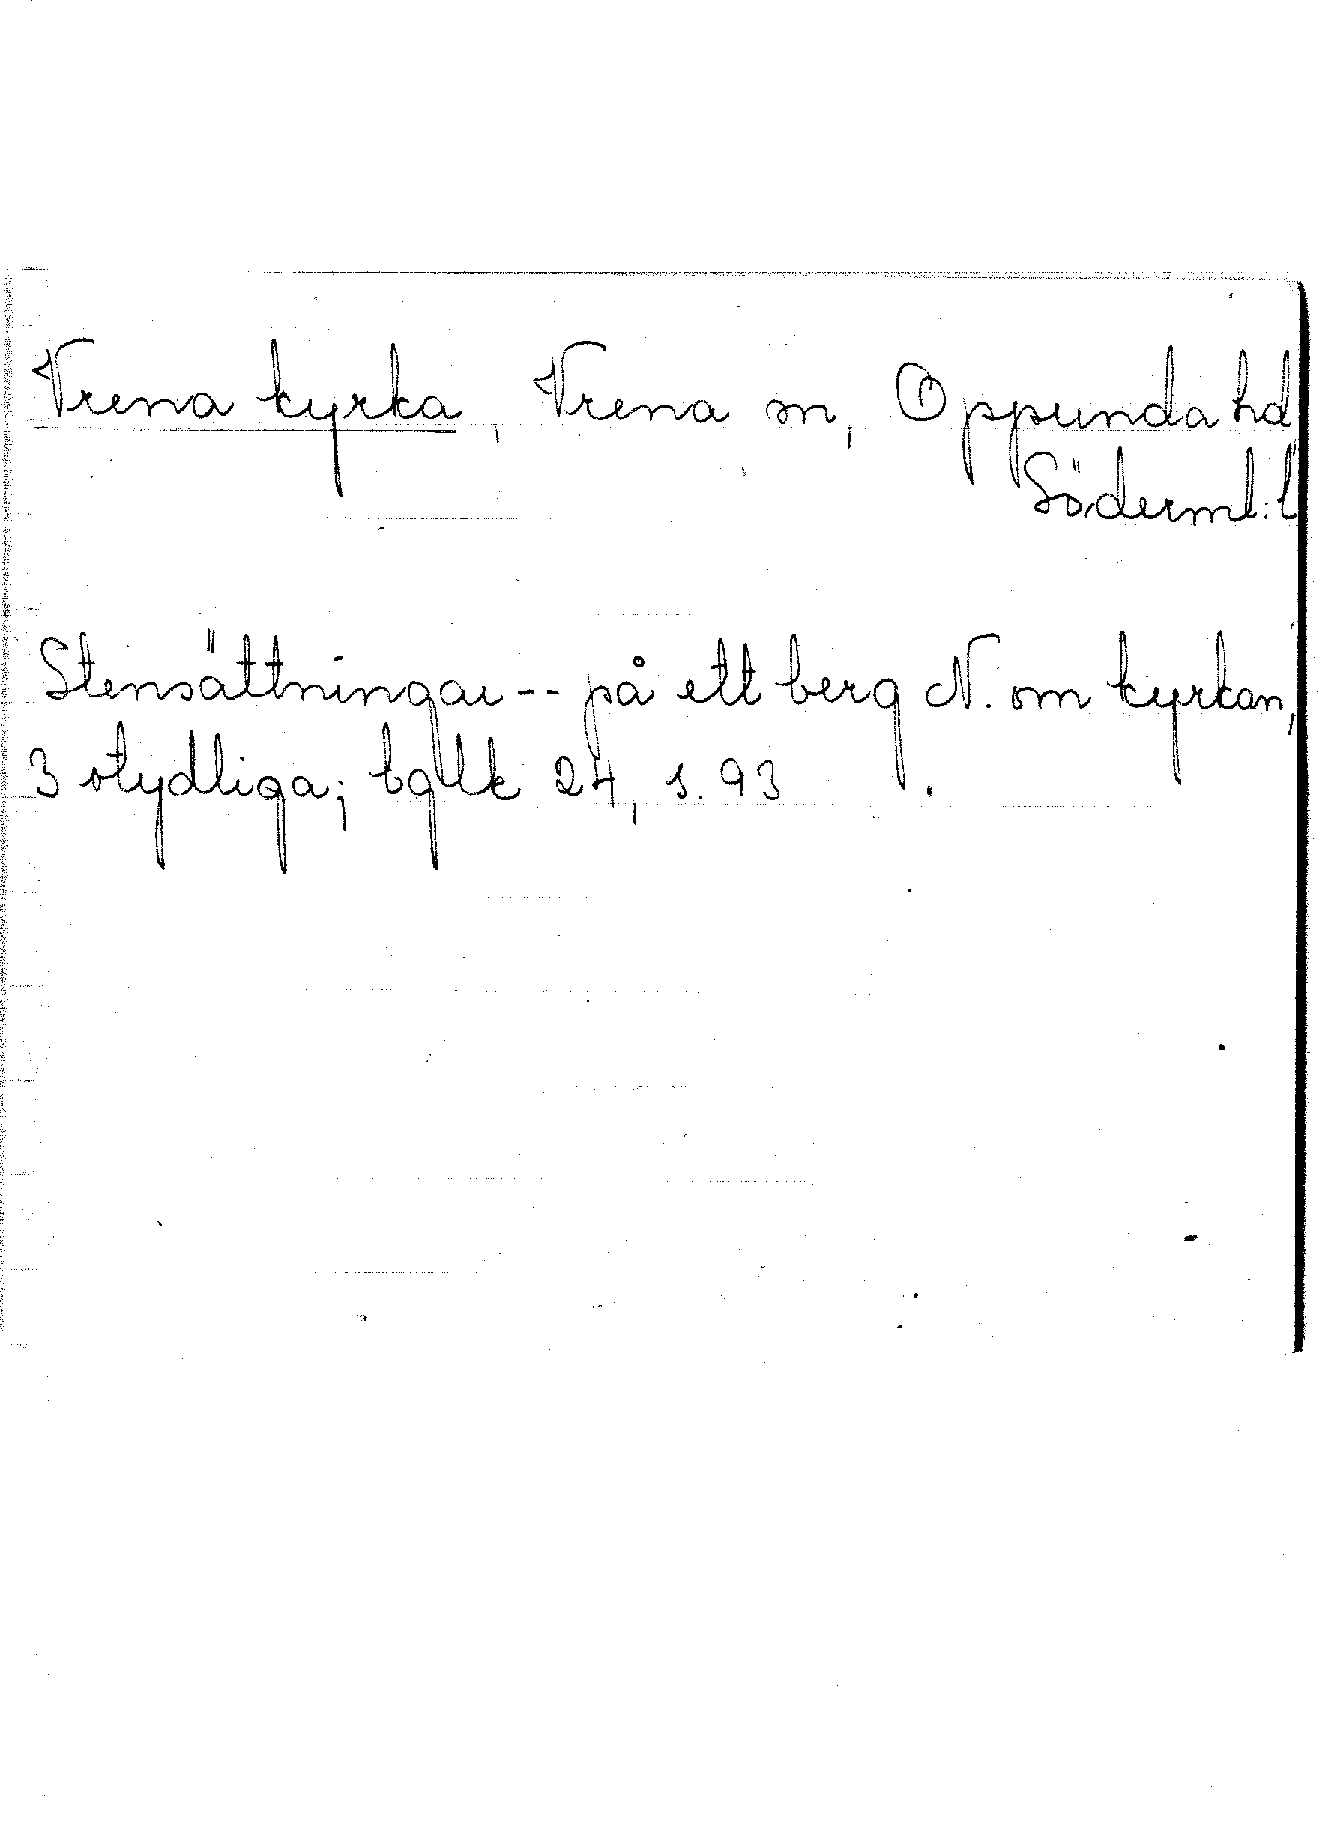 Vrena kyrka, Vrena sn, Oppunda hd
Söderml:l
Stensättningar -- på ett berg N. om kyrkan,
3 otydliga; bglk 24, s. 93